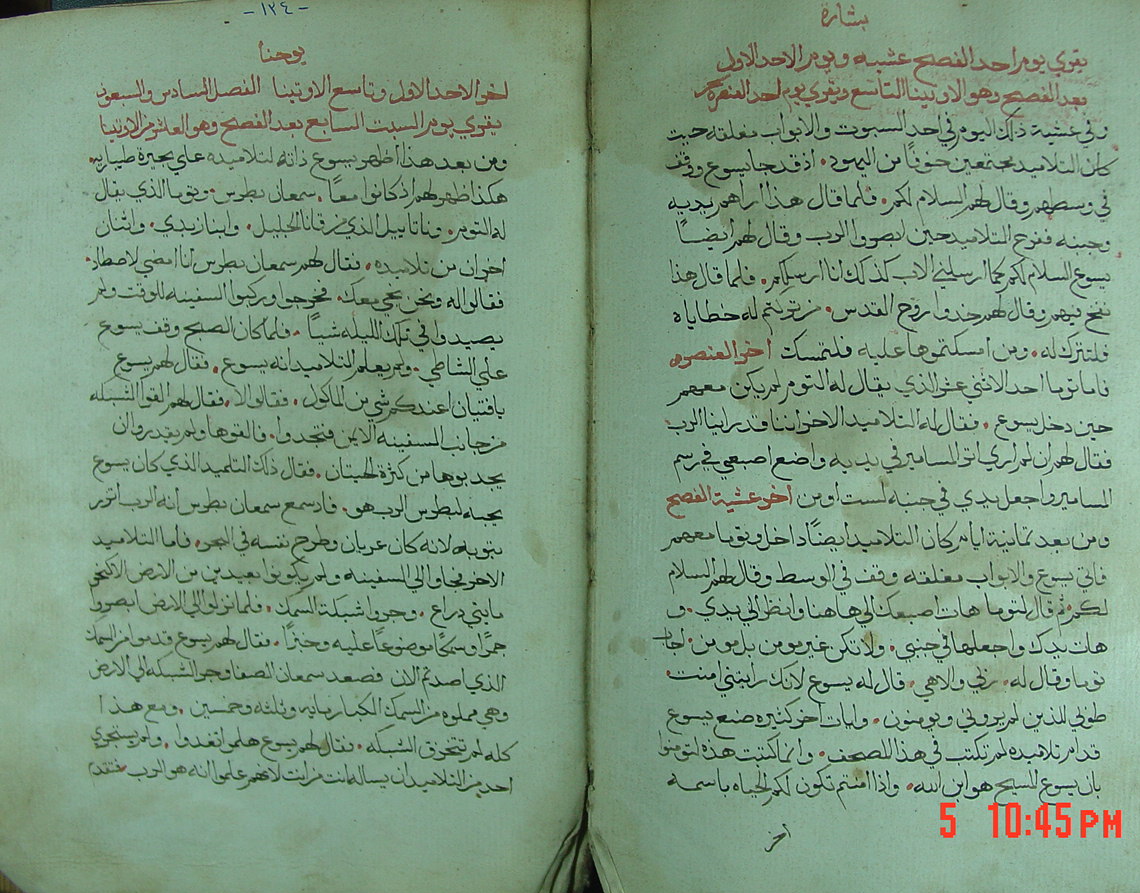 بشارة
يقري يوم احد الفصح عشيه ويوم الاحد الاول
بعد الفصح وهو الاوتينا التاسع ويقري يوم احد العنصرة
وفي عشية ذلك اليوم في احد السبوت والابواب مغلقه حيث
كان التلاميد مجتمعين خوفًا من اليهود. اذ قد جا يسوع ووقف
في وسطهم وقال لهم السلام لكم. فلما قال هذا اراهم يديه
وجنبه ففرح التلاميد حين ابصروا الرب وقال لهم ايضًا
يسوع السلام لكم كما ارسلني الاب كذلك انا ارسلكم. فلما قال هذا
نفخ فيهم وقال لهم خدوا روح القدس. من تركتم له خطاياه
فلتترك له. ومن امسكتموها عليه فلتمسك اخر العنصره
فاما توما احد الاثني عشر الذي يقال له التوم لم يكن معهم
حين دخل يسوع. فقال له التلاميد الاخر اننا قد راينا الرب
فقال لهم ان لم اري اثر المسامير في يديه واضع اصبعي في رسم
المسامير واجعل يدي في جنبه لست اومن اخر عشية الفصح
ومن بعد تمانية ايام كان التلاميد ايضًا داخل وتوما معهم
فاتي يسوع والابواب مغلقه وقف في الوسط وقال لهم السلام
لكم ثم قال لتوما هات اصبعك الي هاهنا وانظر الي يدي. و
هات يدك واجعلها في جنبي. ولا تكن غير مومن بل مومن. اجاب
توما وقال له. ربي والاهي. قال له يسوع لانك رايتني امنت.
طوبي للذين لم يروني ويومنون. وايات اخر كثيره صنع يسوع
قدام تلاميده لم تكتب في هذا المصحف. وانما كتبت هذه لتومنوا
بان يسوع المسيح هو ابن الله. واذا امنتم تكون لكم الحياه باسمه
اخر
5 10:45 PM
- ١٢٤ -
يوحنا
اخر الاحد الاول وتاسع الاوتينا الفصل السادس والسبعون
يقري يوم السبت السابع بعد الفصح وهو العاشر من الاوتينا
ومن بعد هذا اظهر يسوع ذاته لتلاميده علي بحيرة طباريه
هكذا ظهر لهم اذ كانوا معًا. سمعان بطرس. وتوما الذي يقال
له التوم. وناتاييل الذي من قانا الجليل. وابنا زبدي. واثنان
اخران من تلاميده. فقال لهم سمعان بطرس انا امضي لاصطاد.
فقالوا له ونحن نجي معك. فخرجوا وركبوا السفينه للوقت ولم
يصيدوا في تلك الليله شيًا. فلما كان الصبح وقف يسوع
علي الشاطي. ولم يعلم التلاميد انه يسوع. فقال لهم يسوع
يا فتيان اعندكم شي من الماكول. فقالوا لا. فقال لهم القوا الشبكه
من جانب السفينه الايمن فتجدوا. فالقوها ولم يقدروا ان
يجدبوها من كثرة الحيتان. فقال ذلك التلميد الذي كان يسوع
يحبه لبطرس الرب هو. فاد سمع سمعان بطرس انه الرب اتزر
بتوبه لانه كان عريان وطرح نفسه في البحر. فاما التلاميد
الاخر فجاوا الي السفينه ولم يكونوا بعيدين من الارض الا نحو
مايتي دراع. وجروا شبكة السمك. فلما نزلوا الي الارض ابصروا
جمرًا وسمكًا موضوعًا عليه وخبزًا. فقال لهم يسوع قدموا من السمك
الذي اصدتم الان فصعد سمعان الصفا وجر الشبكه الي الارض
وهي مملوه من السمك الكبار مايه وثلثه وخمسين. ومع هذا
كله لم تتخرق الشبكه. فقال لهم يسوع هلموا تغدوا. ولم يستجري
احد من التلاميد ان يساله انت من انت لانهم علموا انه هو الرب فتقدم